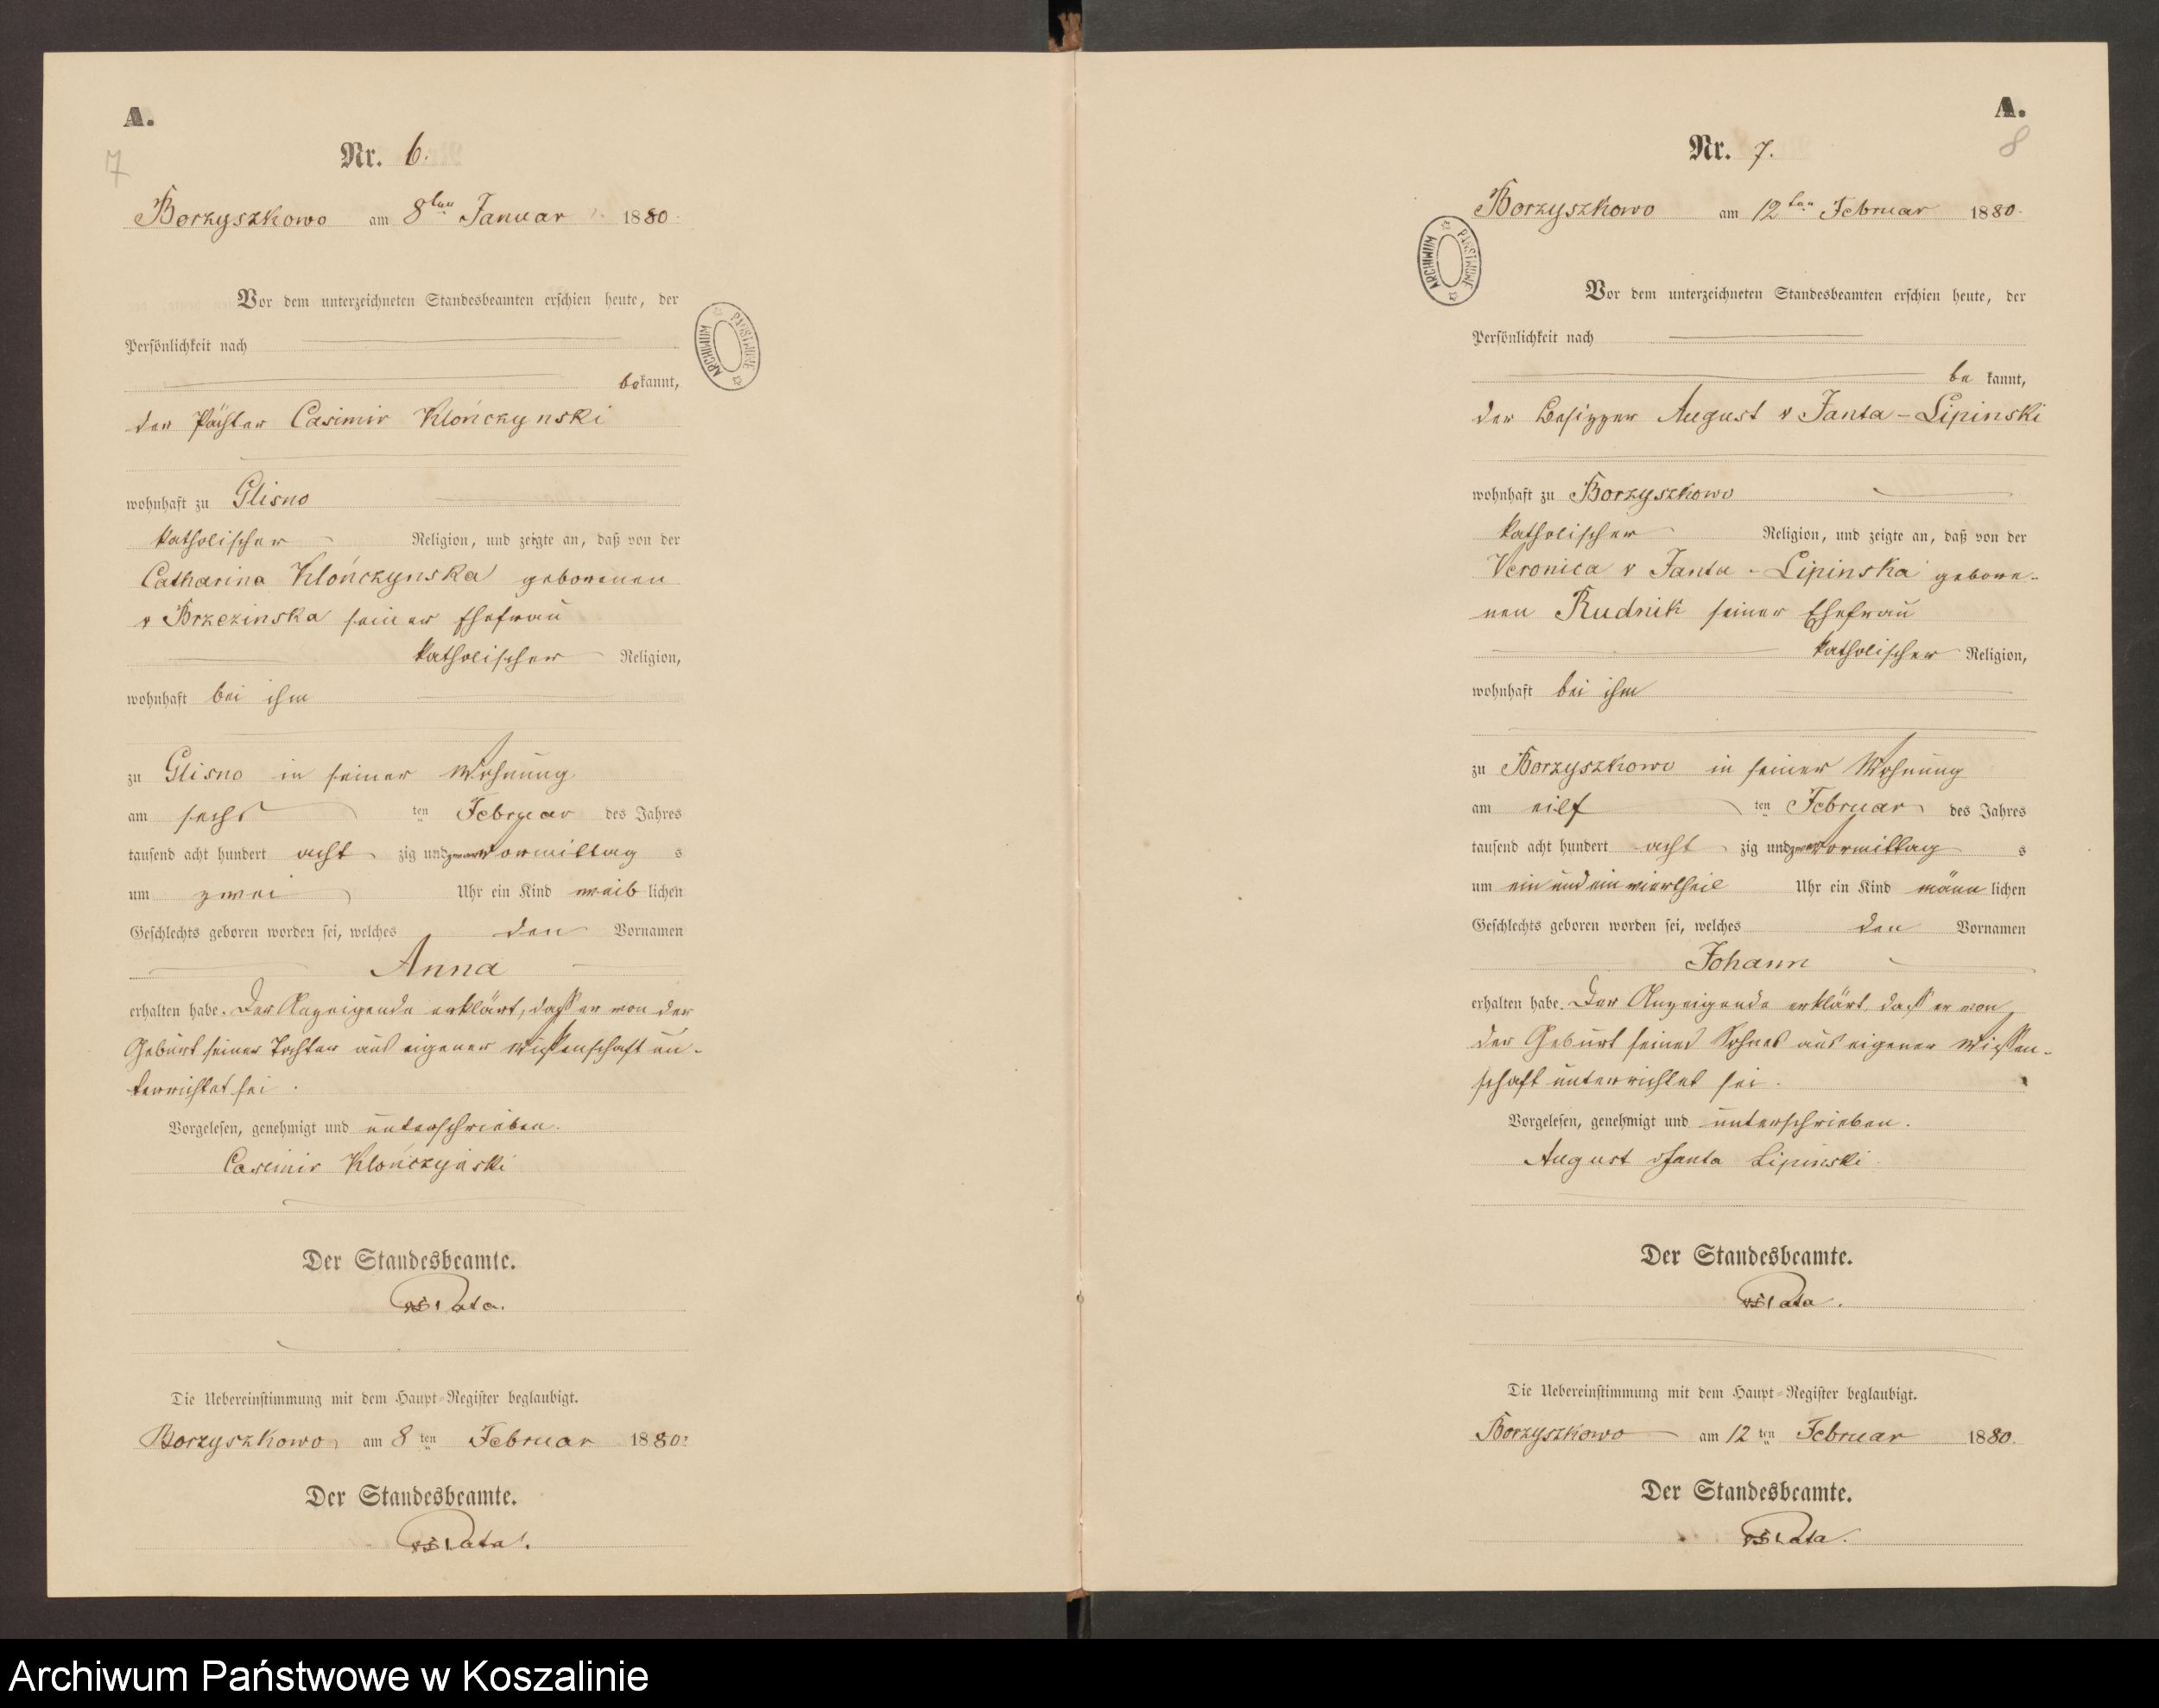 A.
7
Nr. 6.
Borzyszkowo am 8ten Januar 1880.
Vor dem unterzeichneten Standesbeamten erschien heute, der
Persönlichkeit nach
bekannt,
der Pächter Casimir Klończynski
wohnhaft zu Glisno
katholischer Religion, und zeigte an, daß von der
Catharina Klończynska geborenen
v Brzezinska seiner Ehefrau
katholischer Religion,
wohnhaft bei ihm
zu Glisno in seiner Wohnung
am sechs ten Februar des Jahres
tausend acht hundert acht zig und zwar Vormittag s
um zwei Uhr ein Kind weib lichen
Geschlechts geboren worden sei, welches den Vornamen
Anna
erhalten habe. Der Anzeigende erklärt, daß er von der
Geburt seiner Tochter aus eigener Wissenschaft un-
terrichtet sei.
Vorgelesen, genehmigt und unterschrieben.
Casimir Klończyński
Der Standesbeamte.
Die Uebereinstimmung mit dem Haupt-Register beglaubigt.
Borzyszkowo am 8 ten Februar 1880.
Der Standesbeamte.
ARCHIWUM PAŃSTWOWE
A.
8
Nr. 7.
Borzyszkowo am 12ten Februar 1880.
Vor dem unterzeichneten Standesbeamten erschien heute, der
Persönlichkeit nach
be kannt,
der Besitzer August v Janta-Lipinski
wohnhaft zu Borzyszkowo
katholischer Religion, und zeigte an, daß von der
Veronica v Janta-Lipinska gebore-
nen Rudnik seiner Ehefrau
katholischer Religion,
wohnhaft bei ihm
zu Borzyszkowo in seiner Wohnung
am eilf ten Februar des Jahres
tausend acht hundert acht zig und zwar Vormittag s
um ein und ein viertheil Uhr ein Kind männ lichen
Geschlechts geboren worden sei, welches den Vornamen
Johann
erhalten habe. Der Anzeigende erklärt, daß er von
der Geburt seines Sohnes aus eigener Wissen-
schaft unterrichtet sei.
Vorgelesen, genehmigt und unterschrieben.
August v Janta Lipinski
Der Standesbeamte.
Die Uebereinstimmung mit dem Haupt-Register beglaubigt.
Borzyszkowo am 12 ten Februar 1880.
Der Standesbeamte.
ARCHIWUM PAŃSTWOWE
Archiwum Państwowe w Koszalinie